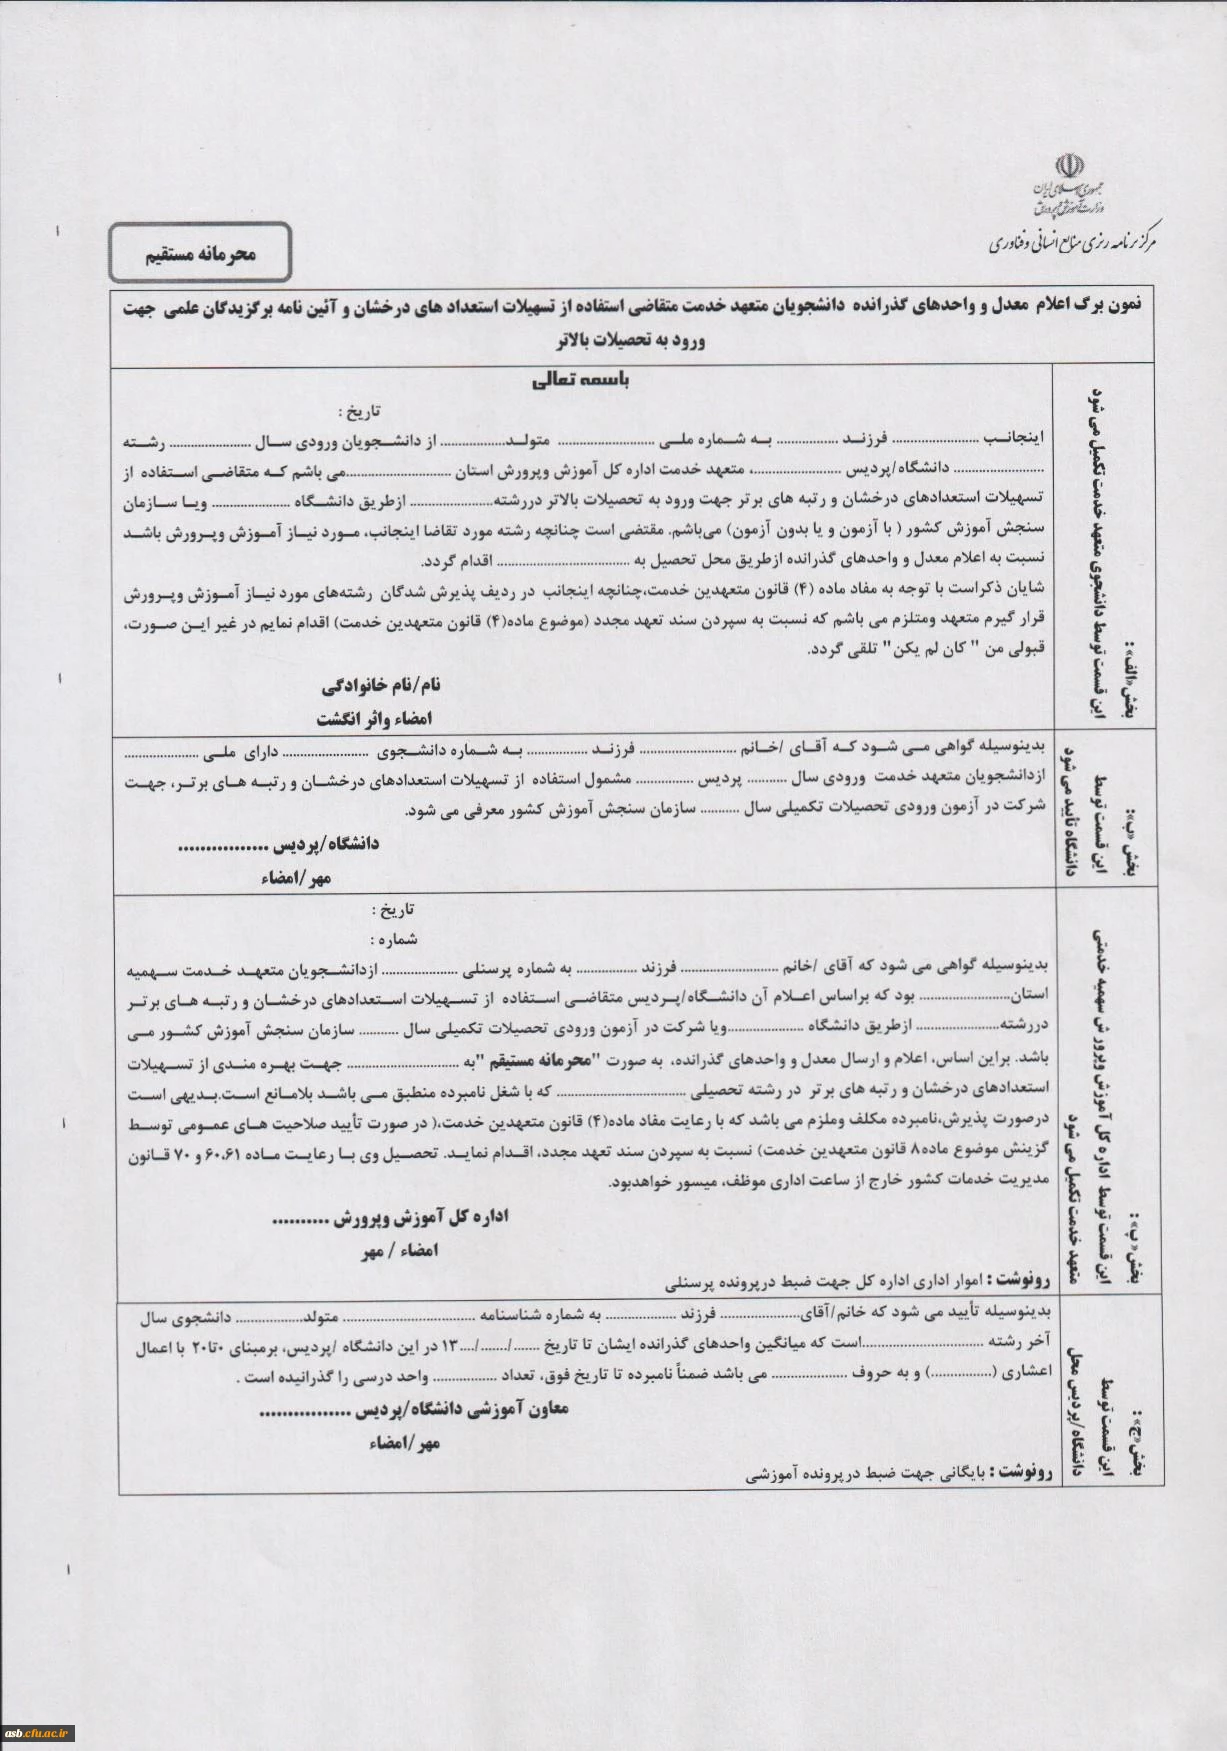 جمهوری اسلامی ایران
وزارت آموزش و پرورش
مرکز برنامه ریزی منابع انسانی و فناوری
محرمانه مستقیم
نمون برگ اعلام معدل و واحدهای گذرانده دانشجویان متعهد خدمت متقاضی استفاده از تسهیلات استعداد های درخشان و آئین نامه برگزیدگان علمی جهت
ورود به تحصیلات بالاتر
بخش «الف» :
این قسمت توسط دانشجوی متعهد خدمت تکمیل می شود
باسمه تعالی
تاریخ :
اینجانب ...................... فرزند ............... به شماره ملی ........................ متولد................ از دانشجویان ورودی سال .................... رشته
...................... دانشگاه/پردیس ......................، متعهد خدمت اداره کل آموزش وپرورش استان ..........................می باشم که متقاضی استفاده از
تسهیلات استعدادهای درخشان و رتبه های برتر جهت ورود به تحصیلات بالاتر دررشته..................... ازطریق دانشگاه ................... ویا سازمان
سنجش آموزش کشور ( با آزمون و یا بدون آزمون) می‌باشم. مقتضی است چنانچه رشته مورد تقاضا اینجانب، مورد نیاز آموزش وپرورش باشد
نسبت به اعلام معدل و واحدهای گذرانده ازطریق محل تحصیل به .................................. اقدام گردد.
شایان ذکراست با توجه به مفاد ماده (۴) قانون متعهدین خدمت،چنانچه اینجانب در ردیف پذیرش شدگان رشته‌های مورد نیاز آموزش وپرورش
قرار گیرم متعهد ومتلزم می باشم که نسبت به سپردن سند تعهد مجدد (موضوع ماده(۴) قانون متعهدین خدمت) اقدام نمایم در غیر این صورت،
قبولی من " کان لم یکن" تلقی گردد.
نام/نام خانوادگی
امضاء واثر انگشت
بخش «ب»:
این قسمت توسط
دانشگاه تأیید می شود
بدینوسیله گواهی می شود که آقای /خانم ........................ فرزند ............... به شماره دانشجوی ...................... دارای ملی ...................
ازدانشجویان متعهد خدمت ورودی سال .......... پردیس .............. مشمول استفاده از تسهیلات استعدادهای درخشان و رتبه های برتر، جهت
شرکت در آزمون ورودی تحصیلات تکمیلی سال .......... سازمان سنجش آموزش کشور معرفی می شود.
دانشگاه/پردیس ................
مهر/امضاء
بخش« پ» :
این قسمت توسط اداره کل آموزش وپرورش سهمیه خدمتی
متعهد خدمت تکمیل می شود
تاریخ :
شماره :
بدینوسیله گواهی می شود که آقای /خانم ........................ فرزند ............... به شماره پرسنلی ................... ازدانشجویان متعهد خدمت سهمیه
استان....................... بود که براساس اعلام آن دانشگاه/پردیس متقاضی استفاده از تسهیلات استعدادهای درخشان و رتبه های برتر
دررشته..................... ازطریق دانشگاه ...................ویا شرکت در آزمون ورودی تحصیلات تکمیلی سال .......... سازمان سنجش آموزش کشور می
باشد. براین اساس، اعلام و ارسال معدل و واحدهای گذرانده، به صورت "محرمانه مستیقم "به ............................ جهت بهره مندی از تسهیلات
استعدادهای درخشان و رتبه های برتر در رشته تحصیلی ................................ که با شغل نامبرده منطبق می باشد بلامانع است.بدیهی است
درصورت پذیرش،نامبرده مکلف وملزم می باشد که با رعایت مفاد ماده(۴) قانون متعهدین خدمت،( در صورت تأیید صلاحیت های عمومی توسط
گزینش موضوع ماده۸ قانون متعهدین خدمت) نسبت به سپردن سند تعهد مجدد، اقدام نماید. تحصیل وی با رعایت ماده ۶۰،۶۱ و ۷۰ قانون
مدیریت خدمات کشور خارج از ساعت اداری موظف، میسور خواهدبود.
اداره کل آموزش وپرورش ..........
امضاء / مهر
رونوشت : اموار اداری اداره کل جهت ضبط درپرونده پرسنلی
بخش«ج» :
این قسمت توسط
دانشگاه/پردیس محل
بدینوسیله تأیید می شود که خانم /آقای.................... فرزند ................. به شماره شناسنامه .......................... متولد................. دانشجوی سال
آخر رشته ..............................است که میانگین واحدهای گذرانده ایشان تا تاریخ ....../....../....۱۳ در این دانشگاه /پردیس، برمبنای ۰تا۲۰ با اعمال
اعشاری (...............) و به حروف ................... می باشد ضمناً نامبرده تا تاریخ فوق، تعداد ................ واحد درسی را گذرانیده است .
معاون آموزشی دانشگاه/پردیس ................
مهر/امضاء
رونوشت : بایگانی جهت ضبط درپرونده آموزشی
asb.cfu.ac.ir